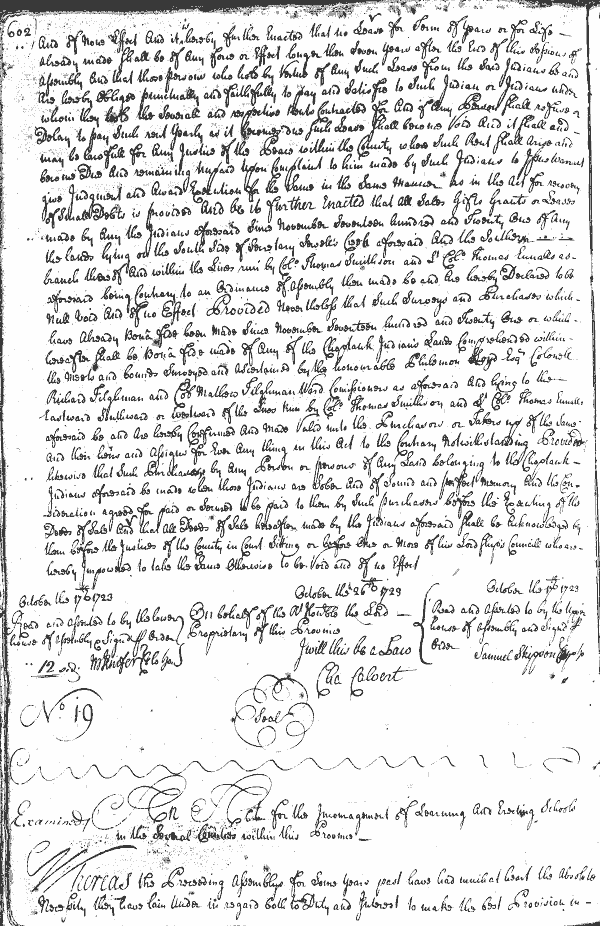 602
And of None Effect And it is hereby further Enacted that no Lease for Term of Years or for Life
already made Shall be of Any force or Effect longer then Seven Years after the End of this Sessions of
Assembly And that those persons who hold by Vertue of Any Such Lease from the Said Indians be and
Are hereby Obliged punctually and faithfully to pay and Satisfie to Such Indian or Indians under
whom they hold the Severall and respective Rents Contracted for And if Any Person Shall refuse or
Delay to pay Such rent Yearly as it becomes due Such Lease Shall become Void And it shall and
may be lawfull for Any Justice of the Peace within the County where Such Rent Shall Arise and
become Due And remaining Unpaid upon Complaint to him made by Such Indians to
give Judgment and Award Execution for the Same in the Same Manner as in the Act for recovery
of Small Debts is provided And be it further Enacted that All Sales Gifts Grants or Leases
made by Any the Indians aforesaid Since November Seventeen hundred and Twenty One of Any
the lands lying on the South Side of Secretary Sewells Creek aforesaid And the Southern
branch thereof And within the Lines run by Colo. Thomas Smithson and Lt. Colo. Thomas Ennalls as
aforesaid being Contrary to an Ordinance of Assembly then made be and are hereby Declared to be
Null Void And of no Effect Provided Nevertheless that Such Surveys and Purchases which
have Already Bona fide been made Since November Seventeen hundred and Twenty One or which
hereafter Shall be Bona fide made of Any of the Choptank Indians Lands Comprehended within
the Meets and bounds Surveyed and Ascertained by the honourable Philemon Lloyd Esqr Colonell
Richard Tilghman and Colo Mathew Tilghman Ward Comissioners as aforesaid And lying to the
Eastward Southward or Westward of the Lines run by Colo. Thomas Smithson and Lt. Colo. Thomas Ennalls
aforesaid be and Are hereby Confirmed And Made Valid unto the Purchasers or Takers up of the Same
And their heirs and Assigns for Ever Any thing in this Act to the Contrary Notwithstanding Provided
likewise that Such Purchases by Any Person or persons of Any Land belonging to the Choptank
Indians aforesaid be made when those Indians are Sober And of Sound and perfect Memory And the Con
sideration agreed for paid or Secured to be paid to them by Such purchasers before the Executing of the
Deeds of Sale And that All Deeds of Sale hereafter made by the Indians aforesaid Shall be Acknowledged by
them before the Justices of the County in Court Sitting or before One or More of his Lordships Councill who are
hereby Impowered to take the Same Otherwise to be Void and of no Effect
October the 17th 1723
Read and Assented to by the lower
house of Assembly & Signed Order
October the 26th 1723
On behalf of the Rt Honble the Lord
Proprietary of this Province
I will this be a Law
Cha Calvert
October the 17th 1723
Read and Assented to by the Upper
house of Assembly and Signed
Order
12
No 19
Seal
Examined
An Act for the Incouragement of Learning And Erecting Schools
in the Several Counties within this Province
Whereas the Preceeding Assemblys for Some Years past have had much at heart the Absolute
Necessity they have lain Under in regard both to Duty and Interest to make the best Provision in